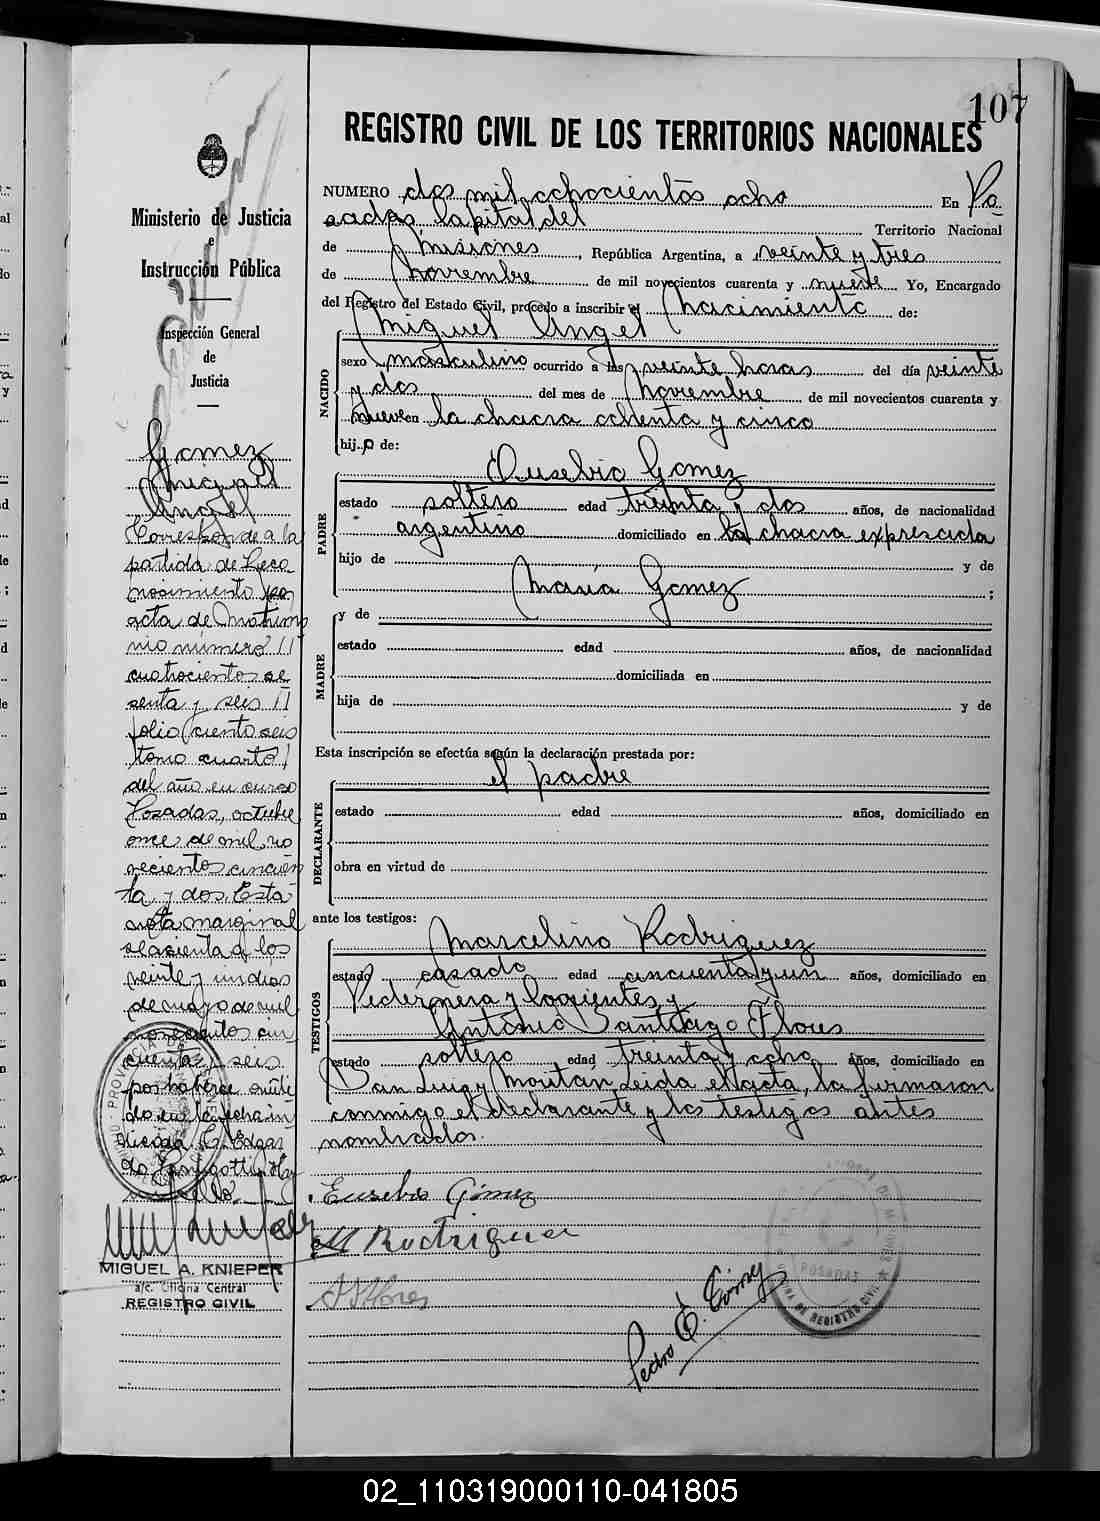 107
REGISTRO CIVIL DE LOS TERRITORIOS NACIONALES
Ministerio de Justicia
e
Instrucción Pública
Inspección General
de
Justicia
NUMERO dos mil ochocientos ocho En Po
sadas, Capital del Territorio Nacional
de Misiones, República Argentina, a veinte y tres
de Noviembre de mil novecientos cuarenta y nueve Yo, Encargado
del Registro del Estado Civil, procedo a inscribir el Nacimiento de:
NACIDO
Miguel Angel
sexo masculino ocurrido a las veinte horas del día veinte
y dos del mes de Noviembre de mil novecientos cuarenta y
nueve en la chacra ochenta y cinco
hijo de:
PADRE
Eusebio Gomez
estado soltero edad treinta y dos años, de nacionalidad
argentino domiciliado en la chacra expresada
hijo de y de
María Gomez ;
MADRE
y de
estado edad años, de nacionalidad
domiciliada en
hija de y de
Esta inscripción se efectúa según la declaración prestada por:
el padre
DECLARANTE
estado edad años, domiciliado en
obra en virtud de
ante los testigos:
TESTIGOS
Marcelino Rodriguez
estado casado edad cincuenta y un años, domiciliado en
Pedernera y Corrientes y
Antonio Santiago Flores
estado soltero edad treinta y ocho años, domiciliado en
San Luis y Leida el acta, la firmaron
conmigo el declarante y los testigos antes
nombrados.
Eusebio Gómez
M Rodriguez
A S Flores
Pedro E.
Gomez
Miguel
Angel
Corresponde a la
partida de Reco
nocimiento por
acta de Matrimo
nio número
cuatrocientos se
senta y seis
folio ciento seis
tomo cuarto
del año en curso
Posadas, octubre
once de mil no
vecientos cincuen
ta y dos. Esta
nota marginal
se asienta a los
veinte y un dias
de mayo de mil
novecientos cin
cuenta y seis
por haberse omiti
do en la fecha in
dicada. Fs. Edgar
do Hay
un sello
MIGUEL A. KNIEPER
a/c. Oficina Central
REGISTRO CIVIL
POSADAS
DE REGISTRO CIVIL
02_110319000110-041805